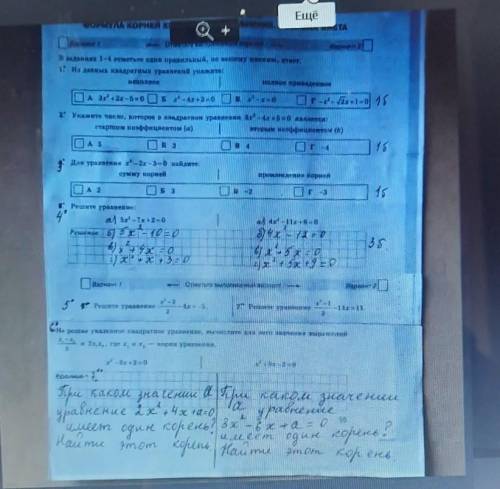 Ещё
ФОРМУЛА КОРНЕЙ
Вариант 1 Вариант 2
В заданиях 1–4 отметьте один правильный, по вашему мнению, ответ.
1. Из данных квадратных уравнений укажите:
неполное полное приведенное
А 3x²+2x-5=0 Б x²-4x+3=0 В x²-x=0 Г -x²-√2x+1=0 1б
2. Укажите число, которое в квадратном уравнении 3x²-4x+5=0 является:
старшим коэффициентом (a) вторым коэффициентом (b)
А 5 Б 3 В 4 Г -4 1б
3. Для уравнения x²-2x-3=0 найдите:
сумму корней произведение корней
А 2 Б 3 В -2 Г -3 1б
4. Решите уравнение:
а) 5x²-7x+2=0 а) 4x²-11x+6=0
Решение б) 5x²-10=0 б) 4x²-12=0 3б
в) x²+4x=0 в) x²+5x=0
г) x²+x+3=0 г) x²+3x+9=0
Вариант 1 Отметьте выполняемый вариант Вариант 2
5. Решите уравнение Решите уравнение
6. Не решая указанное квадратное уравнение, вычислите для него значения выражений
и 2x₁x₂, где x₁ и x₂ — корни уравнения.
Решение
При каком значении а При каком значении
уравнение 2x²+4x+a=0 а уравнение
имеет один корень? 3x²-6x+a=0
Найти этот корень имеет один корень?
Найти этот корень